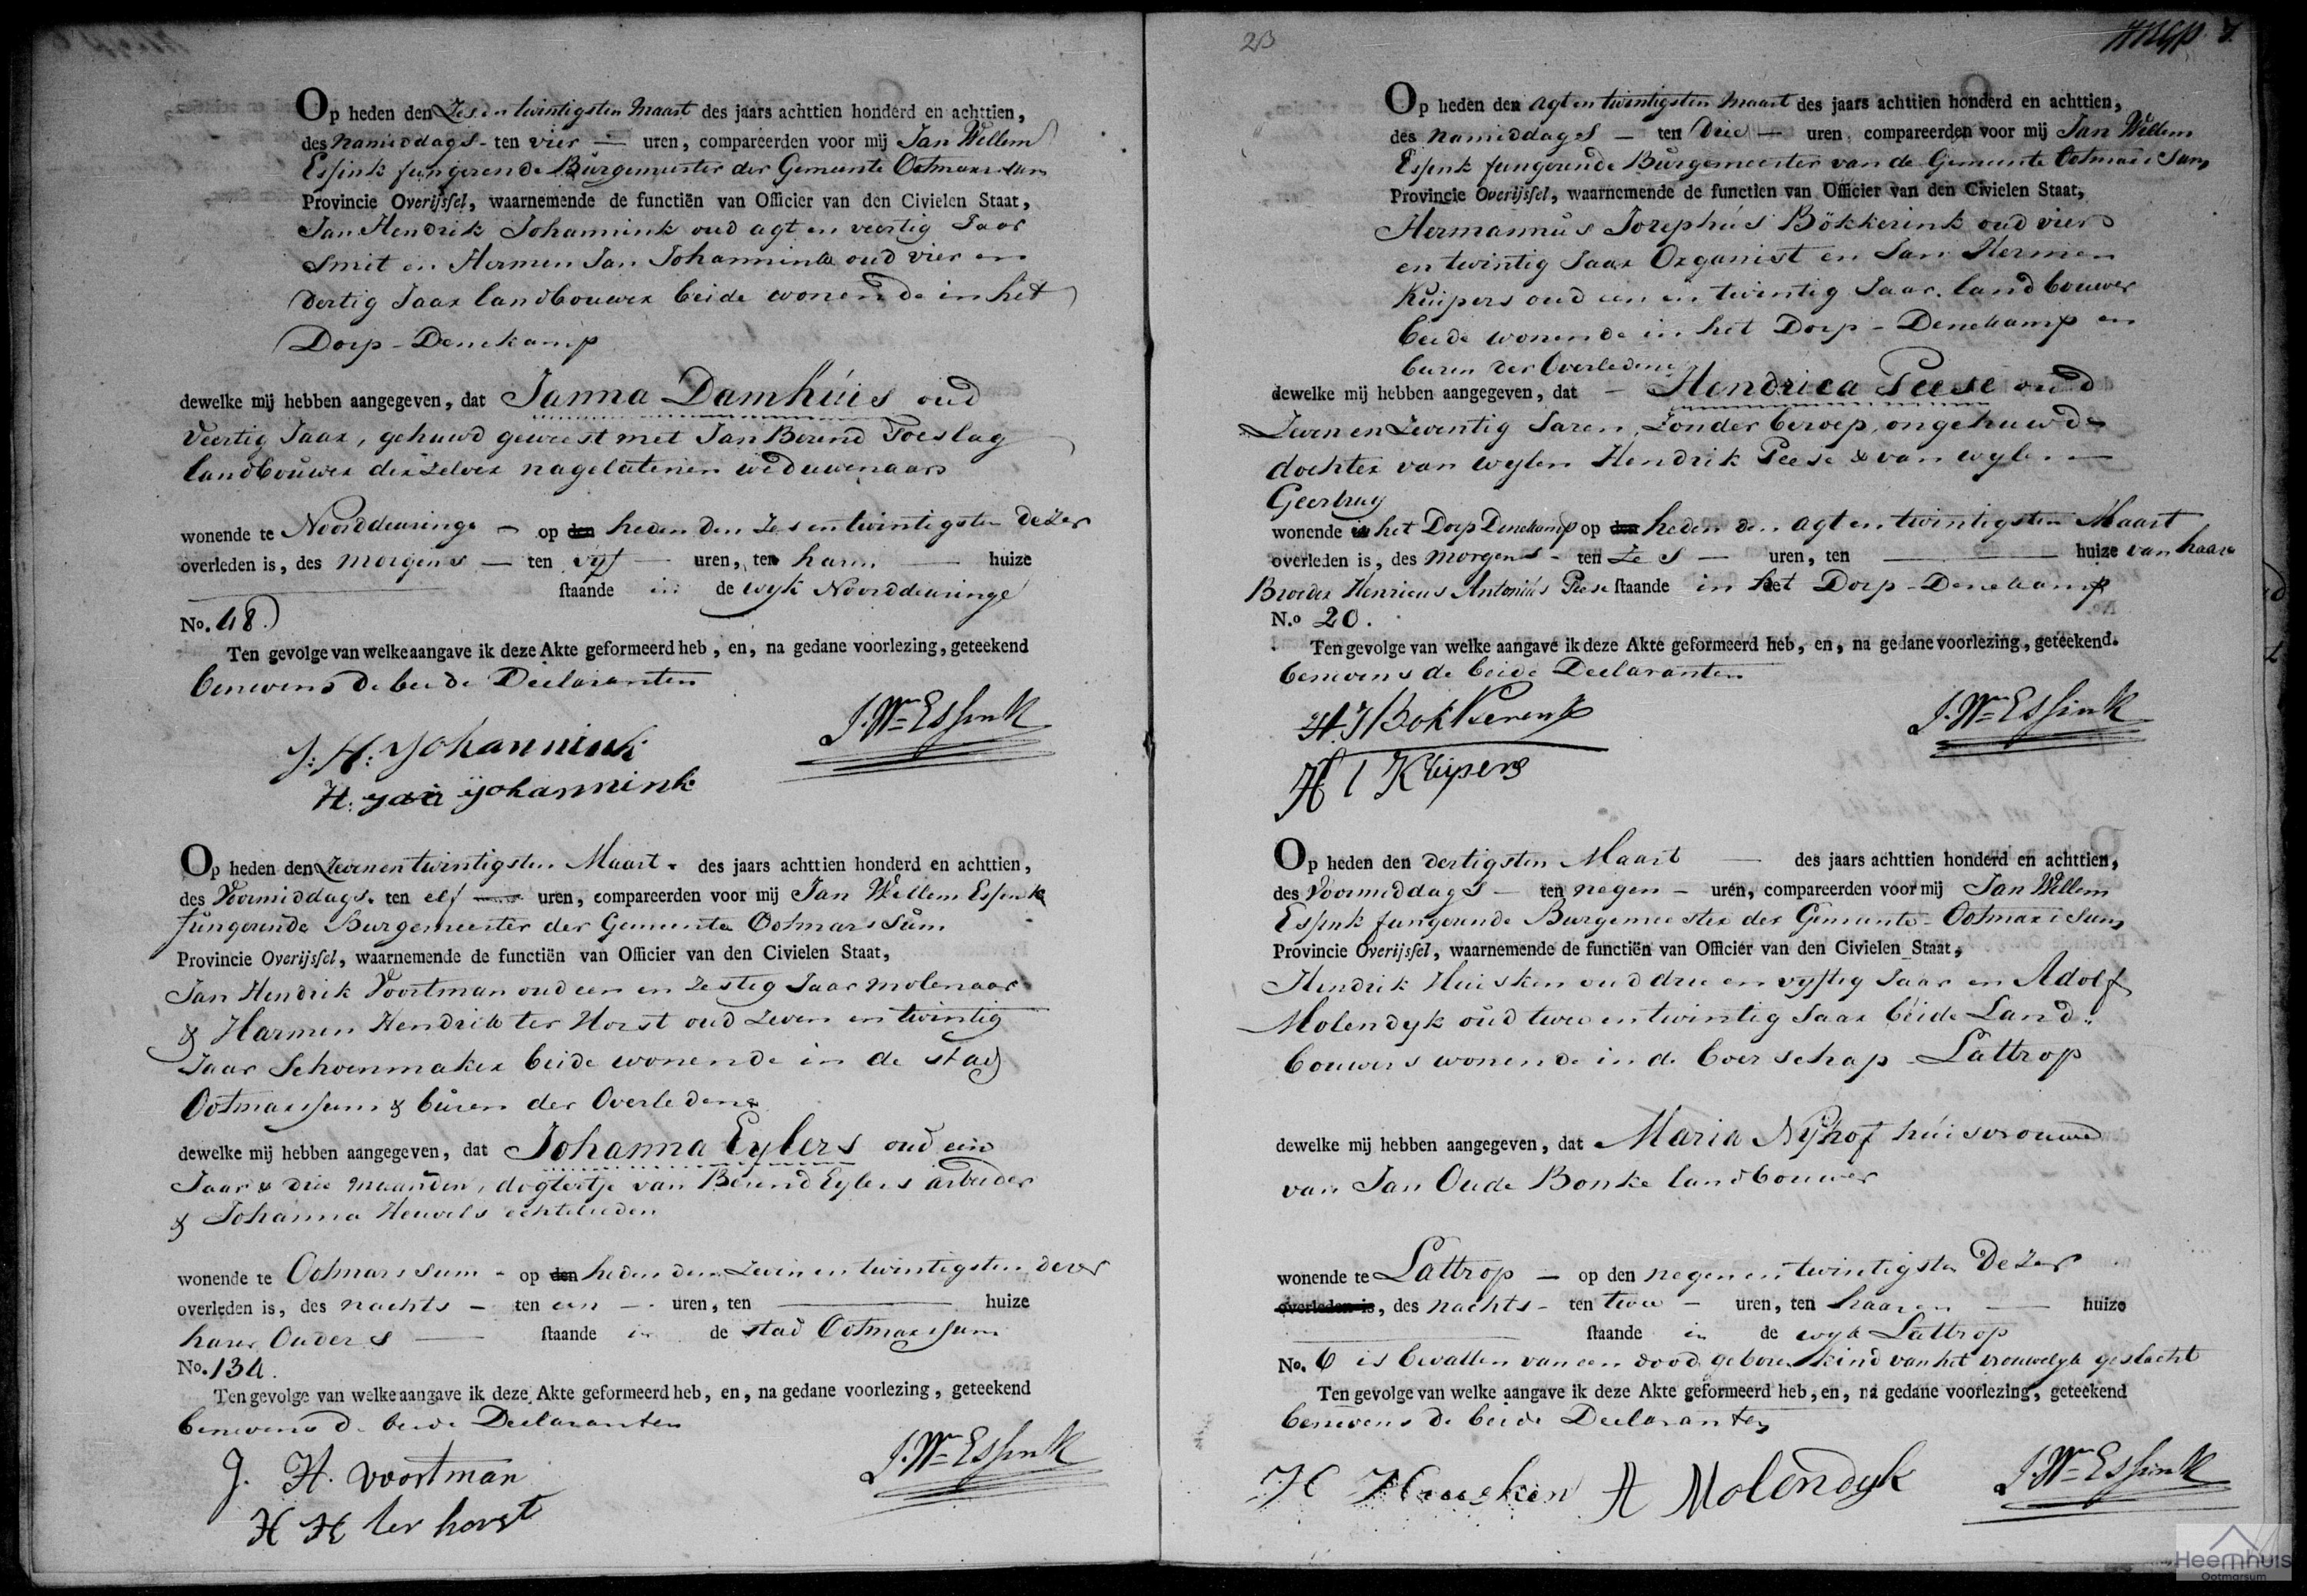 Op heden den Zes en twintigsten Maart des jaars achttien honderd en achttien,
des namiddags - ten vier — uren, compareerden voor mij Jan Willem
Essink fungerende Burgemeester der Gemeente Ootmarssum
Provincie Overijssel, waarnemende de functiën van Officier van den Civielen Staat,
Jan Hendrik Johannink oud agt en veertig Jaar
Smit en Hermen Jan Johannink oud vier en
dertig Jaar landbouwer beide wonende in het
Dorp - Denekamp
dewelke mij hebben aangegeven, dat Janna Damhuis oud
Veertig Jaar, gehuwd geweest met Jan Berend Toeslag
landbouwer deszelver nagelatenen weduwenaar
wonende te Noorddeuringe - op den heden den Zes en twintigsten dezer
overleden is, des morgens — ten vyf — uren, ten haren — huize
staande in de wyk Noorddeuringe
No. 48
Ten gevolge van welke aangave ik deze Akte geformeerd heb, en, na gedane voorlezing, geteekend
benevens de beide Declaranten
J. Wm Essink
J: H: Johannink
H: Jan Johannink
Op heden den Zeven en twintigsten Maart - des jaars achttien honderd en achttien,
des Voormiddags. ten elf — uren, compareerden voor mij Jan Willem Essink
fungerende Burgemeester der Gemeente Ootmarssum
Provincie Overijssel, waarnemende de functiën van Officier van den Civielen Staat,
Jan Hendrik Voortman oud een en Zestig Jaar molenaar
& Harmen Hendrik ter Horst oud Zeven en twintig
Jaar Schoenmaker beide wonende in de stad
Ootmarssum & buren der Overledene
dewelke mij hebben aangegeven, dat Johanna Eylers oud een
Jaar & drie maanden, dogtertje van Berend Eylers arbeider
& Johanna Heuvels echtelieden
wonende te Ootmarssum - op den heden den Zeven en twintigsten dezer
overleden is, des nachts - ten een — uren, ten — huize
harer Ouders — staande in de stad Ootmarssum
No. 134.
Ten gevolge van welke aangave ik deze Akte geformeerd heb, en, na gedane voorlezing, geteekend
benevens de beide Declaranten
J. Wm Essink
J. H. Voortman
H H ter horst
23
Op heden den agt en twintigsten Maart des jaars achttien honderd en achttien,
des namiddags — ten drie — uren, compareerden voor mij Jan Willem
Essink fungerende Burgemeester van de Gemeente Ootmarssum,
Provincie Overijssel, waarnemende de functien van Officier van den Civielen Staat,
Hermannus Josephus Bökkerink oud vier
en twintig Jaar Organist en Jan Hermen
Kuipers oud een en twintig Jaar. landbouwer
beide wonende in het Dorp - Denekamp en
buren der Overledene
dewelke mij hebben aangegeven, dat - Hendrica Peese oud
Zeven en Zeventig Jaren, Zonder beroep, ongehuwde
dochter van wylen Hendrik Peese & van wylen —
Geertruy
wonende in het Dorp Denekamp op den heden den agt en twintigsten Maart
overleden is, des morgens - ten Zes — uren, ten — huize van haar
Broeder Henricus Antonius Peese staande in het Dorp - Denekamp
N.o 20.
Ten gevolge van welke aangave ik deze Akte geformeerd heb, en, na gedane voorlezing, geteekend.
benevens de beide Declaranten
J. Wm Essink
H. J Bokkerink
H J Kuipers
Op heden den dertigsten Maart — des jaars achttien honderd en achttien,
des Voormiddags — ten negen - uren, compareerden voor mij Jan Willem
Essink fungerende Burgemeester der Gemeente - Ootmarssum,
Provincie Overijssel, waarnemende de functiën van Officier van den Civielen Staat,
Hendrik Huisken oud drie en vyftig Jaar en Adolf
Molendyk oud twee en twintig Jaar beide Land-
bouwers wonende in de boerschap - Lattrop
dewelke mij hebben aangegeven, dat Maria Nyhof huisvrouwe
van Jan Oude Bonke landbouwer
wonende te Lattrop — op den negen en twintigsten Dezer
overleden is, des nachts - ten twee - uren, ten haaren — huize
staande in de wyk Lattrop
No. 6 is bevallen van een dood geboren kind van het vrouwelyk geslacht
Ten gevolge van welke aangave ik deze Akte geformeerd heb, en, na gedane voorlezing, geteekend
benevens de beide Declaranten,
H Huisken A Molendyk J. Wm Essink
Heemhuis
Ootmarsum